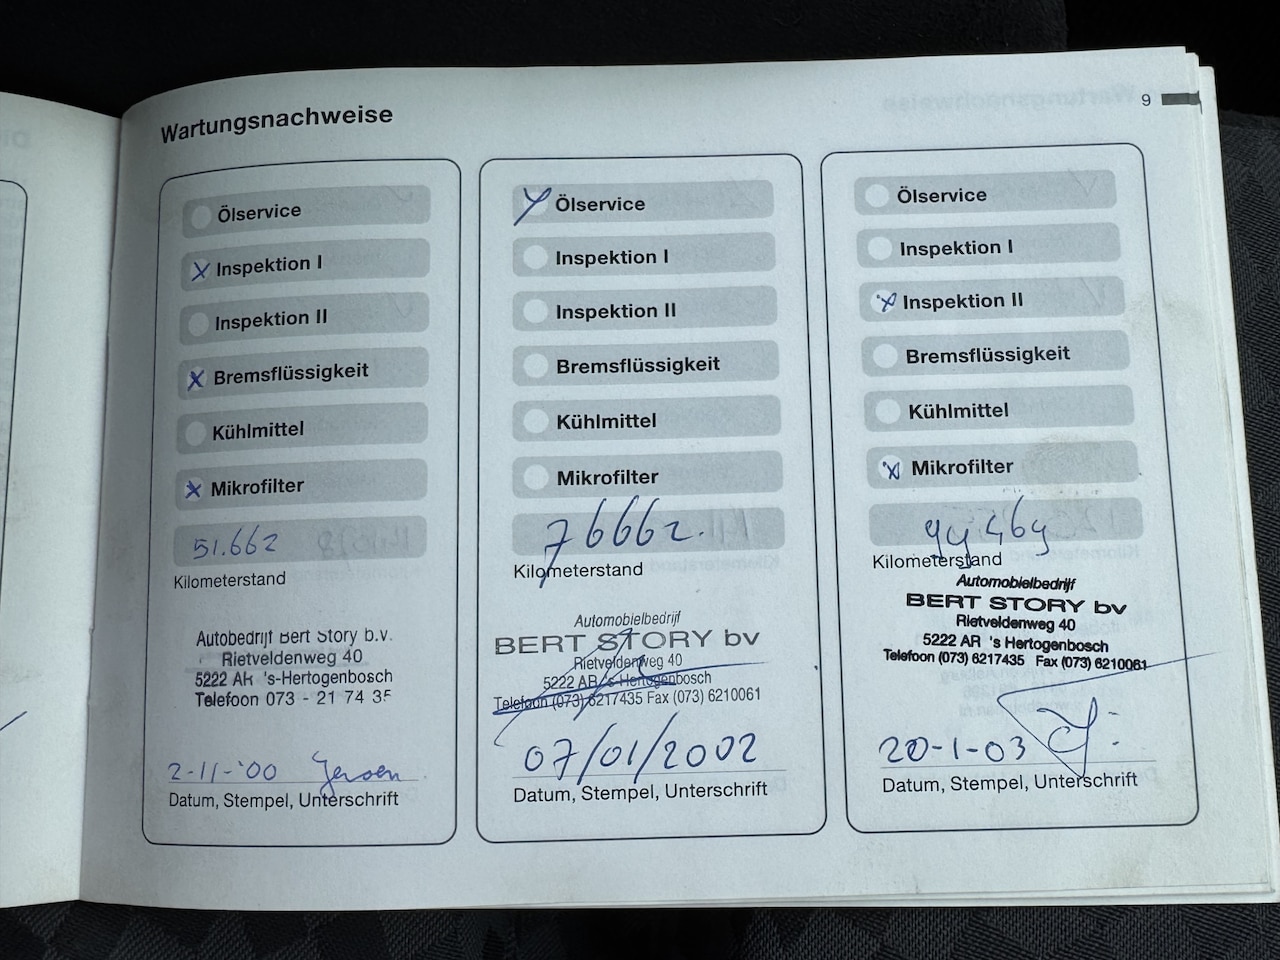 Wartungsnachweise
9
Ölservice
Inspektion I
Inspektion II
Bremsflüssigkeit
Kühlmittel
Mikrofilter
51.662
Kilometerstand
Autobedrijf Bert Story b.v.
Rietveldenweg 40
5222 AK 's-Hertogenbosch
Telefoon 073 - 21 74 35
2-11-'00 Jeroen
Datum, Stempel, Unterschrift
Ölservice
Inspektion I
Inspektion II
Bremsflüssigkeit
Kühlmittel
Mikrofilter
76662.
Kilometerstand
Automobielbedrijf
BERT STORY bv
Rietveldenweg 40
5222 AR 's Hertogenbosch
Telefoon (073) 6217435 Fax (073) 6210061
07/01/2002
Datum, Stempel, Unterschrift
Ölservice
Inspektion I
Inspektion II
Bremsflüssigkeit
Kühlmittel
Mikrofilter
99469
Kilometerstand
Automobielbedrijf
BERT STORY bv
Rietveldenweg 40
5222 AR 's Hertogenbosch
Telefoon (073) 6217435 Fax (073) 6210061
20-1-03
Datum, Stempel, Unterschrift